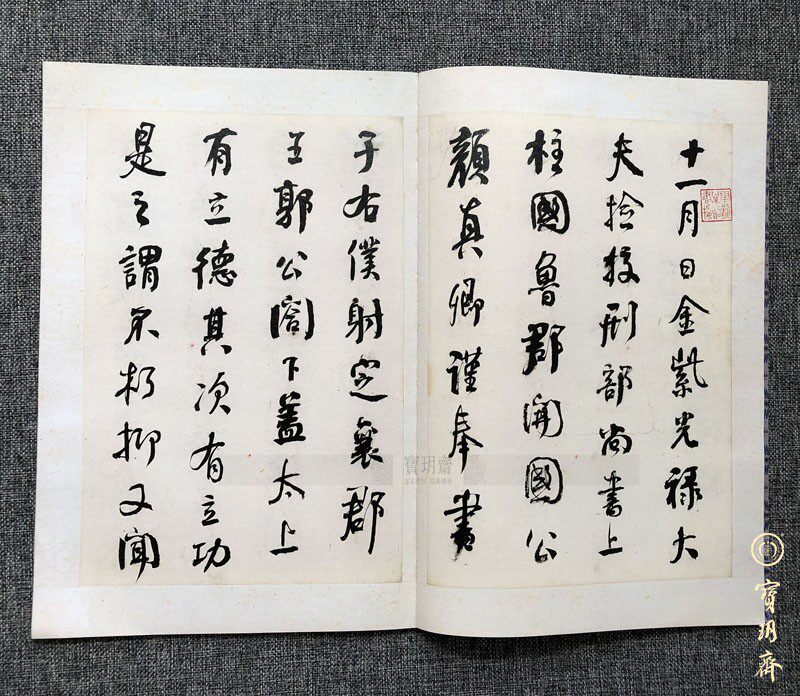 十一月日金紫光禄大
夫撿挍刑部尚書上
柱國魯郡開國公
顏真卿謹奉書
于右僕射定襄郡
王郭公閤下蓋太上
有立德其次有立功
是之謂不朽抑又聞
寶玥齋
寶玥齋